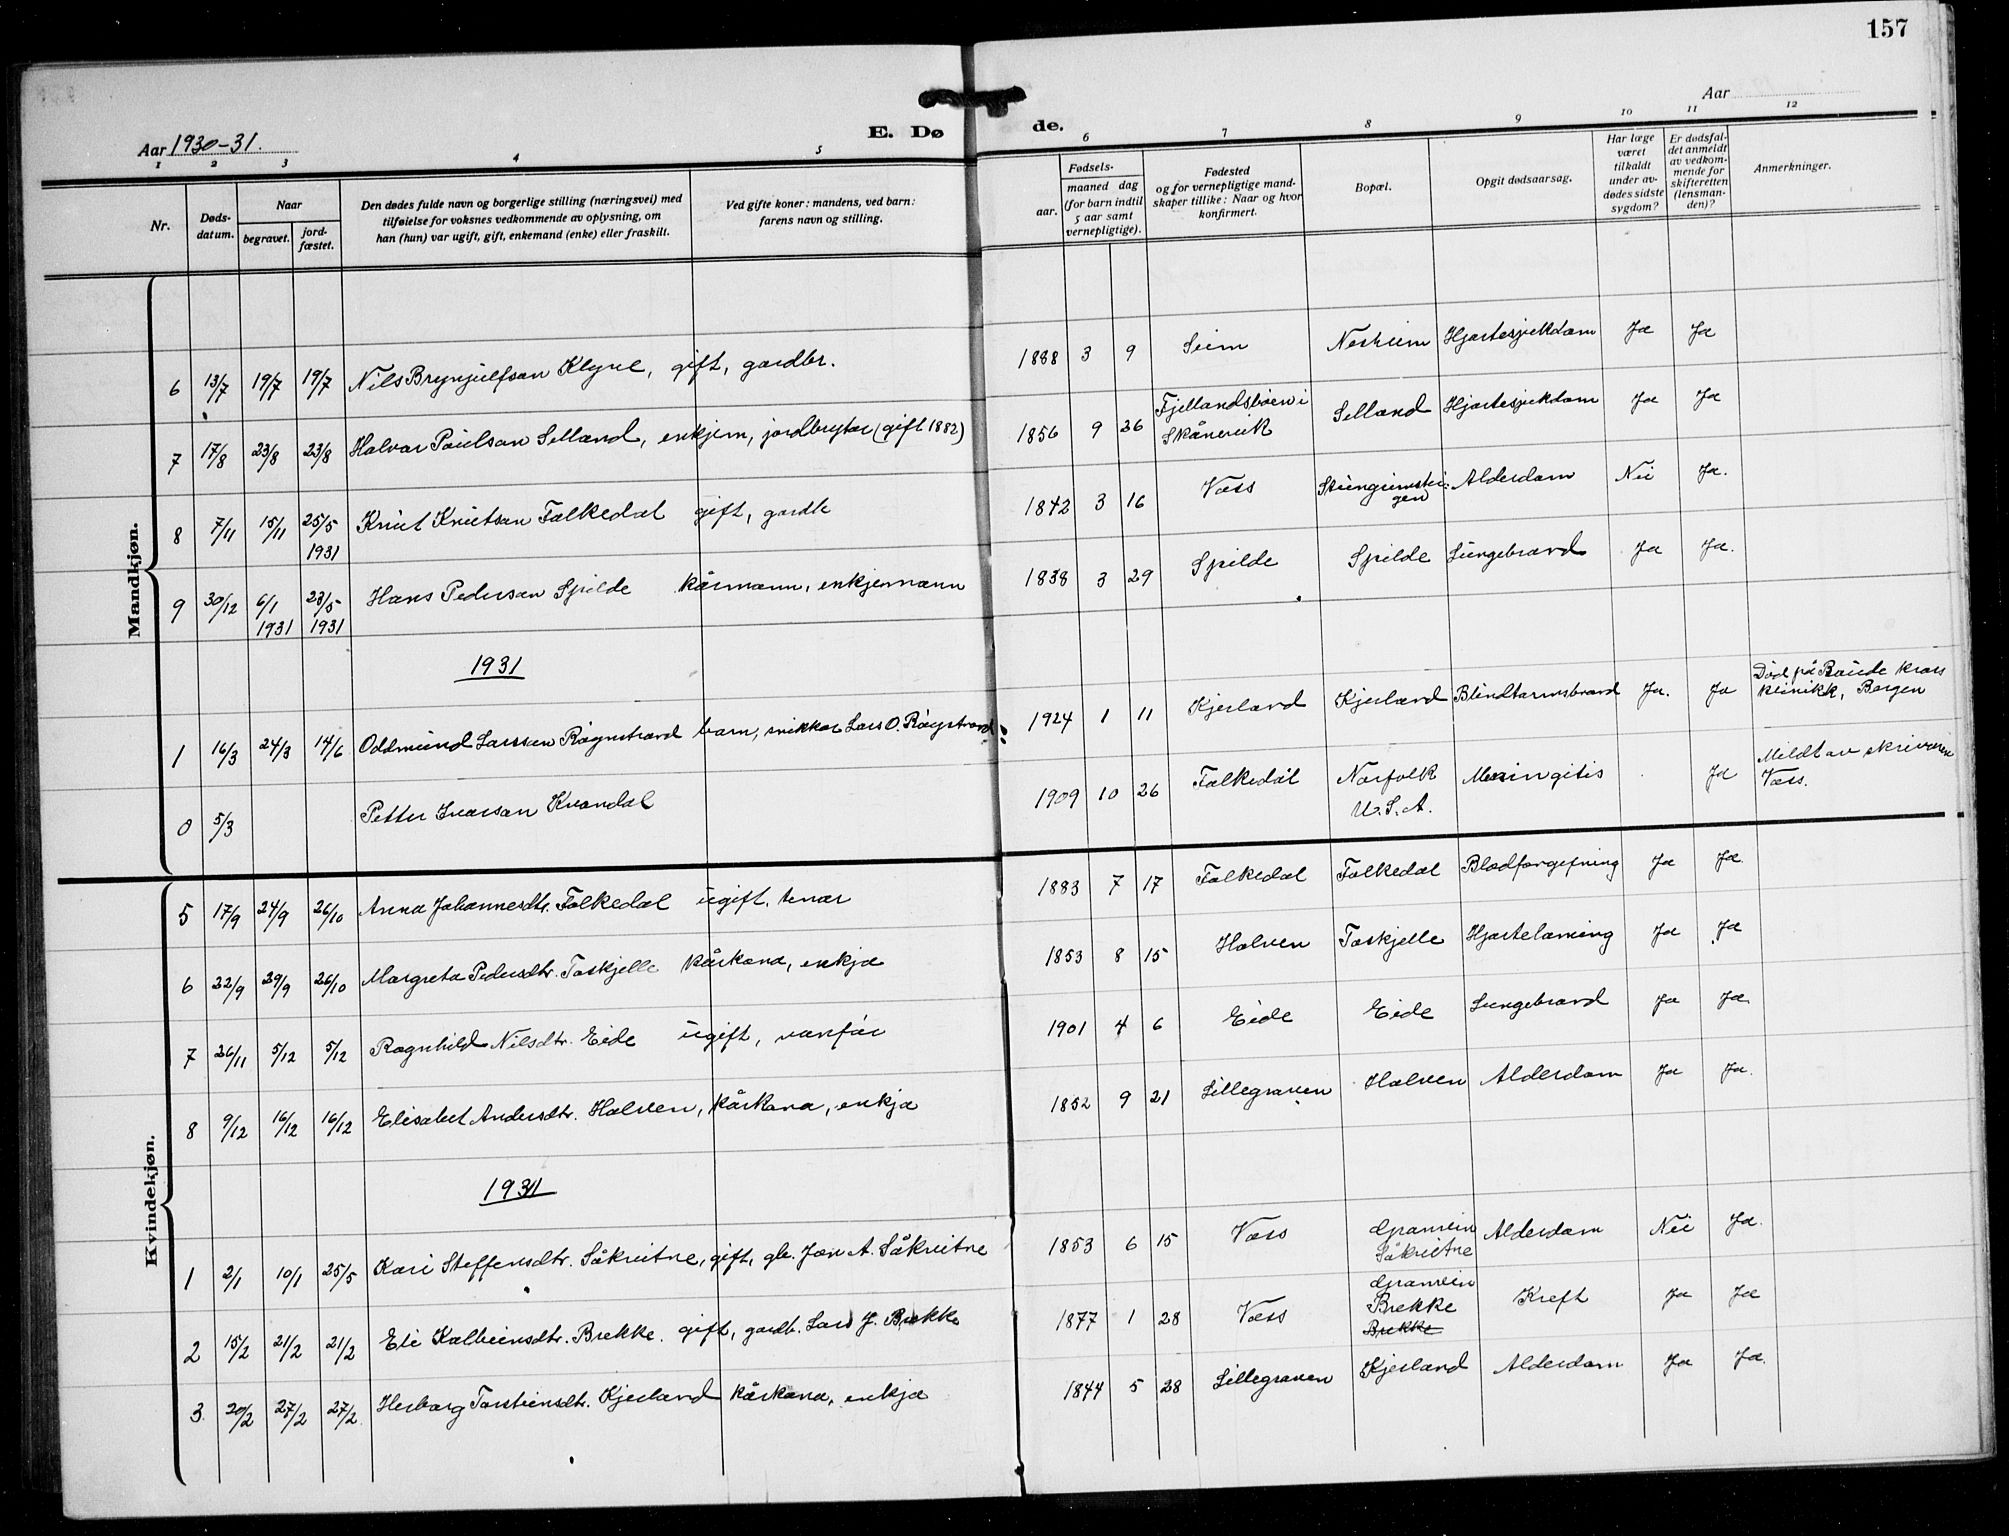 157
Aar 1930-31.
E. Dø
de.
Aar
1 2 3 4 5 6 7 8 9 10 11 12
Nr.
Døds-
datum.
Naar
begravet.
jord-
fæstet.
Den dødes fulde navn og borgerlige stilling (næringsvei) med
tilføielse for voksnes vedkommende av oplysning, om
han (hun) var ugift, gift, enkemand (enke) eller fraskilt.
Ved gifte koner: mandens, ved barn:
farens navn og stilling.
Fødsels-
aar.
maaned dag
(for barn indtil
5 aar samt
vernepligtige).
Fødested
og for vernepligtige mand-
skaper tillike: Naar og hvor
konfirmert.
Bopæl.
Opgit dødsaarsag.
Har læge
været
tilkaldt
under av-
dødes sidste
sygdom?
Er dødsfal-
det anmeldt
av vedkom-
mende for
skifteretten
(lensman-
den)?
Anmerkninger.
Mandkjøn.
6 13/7 19/7 19/7 Nils Brynjulfson Klyve, gift, gardbr. 1888 3 9 Seim Nesheim Hjartesjukdom Ja Ja
7 17/8 23/8 23/8 Halvar Poulson Selland, enkjem, jordbrytar (gift 1882) 1856 9 26 Fjellandsbøen i
Skånevik Selland Hjartesjukdom Ja Ja
8 7/11 15/11 25/5
1931 Knut Knutson Falkedal gift, gardb 1842 3 16 Voss Alderdom Nei Ja.
9 30/12 6/1
1931 28/5
1931 Hans Pederson Spilde kårmann, enkjemann 1838 3 29 Spilde Spilde Lungebrand Ja Ja.
1931
1 16/3 24/3 14/6 Oddmund Larsson Rognstrand barn, snikkar Lars O. Rognstrand 1924 1 11 Kjerland Kjerland Blindtarmsbrand Ja. Ja Død på Røude kross
klinikk, Bergen
0 5/3 Petter Ivarson Kvandal 1909 10 26 Falkedal Norfolk
U.S.A. Meningitis Ja Meldt av skrivaren
Voss.
Kvindekjøn.
5 17/9 24/9 26/10 Anna Johannesdtr. Falkedal ugift, tenar 1883 7 17 Falkedal Falkedal Blodforgifning Ja Ja
6 22/9 29/9 26/10 Margreta Pedersdtr. Toskjelle kårkona, enkja 1853 8 15 Halven Toskjelle Hjartelaming Ja Ja
7 26/11 5/12 5/12 Ragnhild Nilsdtr. Eide ugift, vanfør 1901 4 6 Eide Eide Lungebrand Ja Ja
8 9/12 16/12 16/12 Elisabet Andersdtr. Halven, kårkona, enkja 1852 9 21 Lillegraven Halven Alderdom Ja Ja.
1931
1 2/1 10/1 25/5 Kari Steffensdtr. Såkvitne, gift, gb. Jon A. Såkvitne 1853 6 15 Voss Granvin
Såkvitne Alderdom Nei Ja.
2 15/2 21/2 21/2 Eli Kolbeinsdtr. Brekke. gift, gardb. Lars J. Brekke 1877 1 28 Voss Granvin
Brekke
Brekke Kreft Ja Ja
3. 20/2 27/2 27/2. Herborg Torsteinsdtr. Kjerland kårkona, enkja 1844 5 28 Lillegraven Kjerland Alderdom Ja Ja.